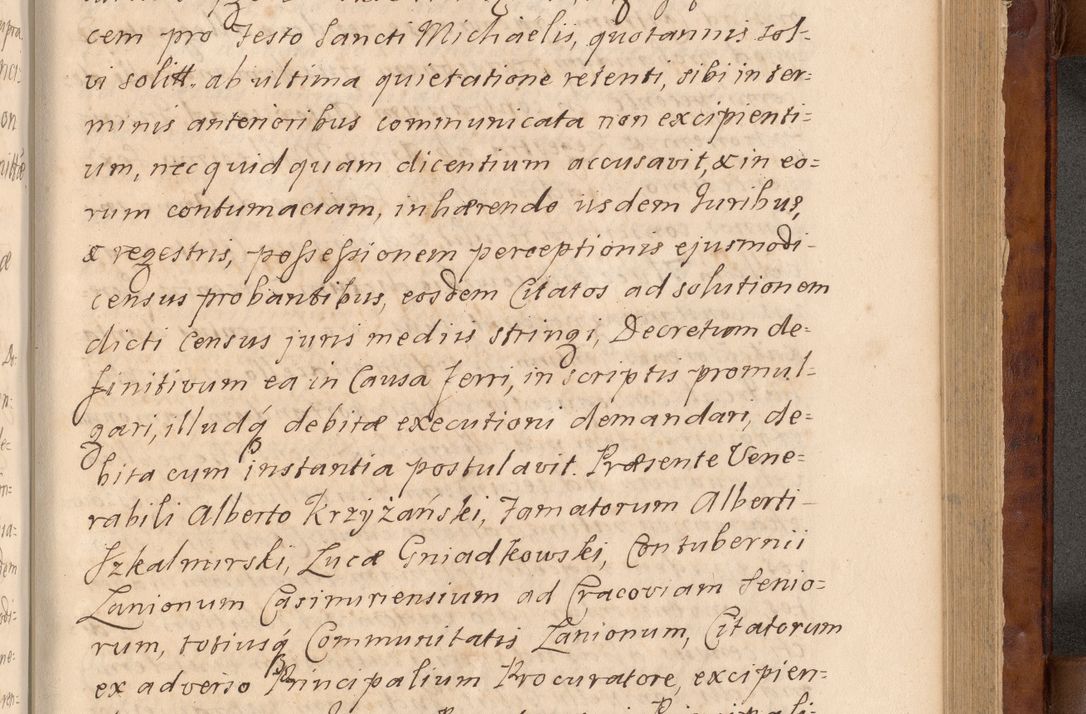 cem pro Festo Sancti Michaelis, quotannis sol-
vi solitt. ab ultima quietatione retenti, sibi in ter-
minis anterioribus communicata non excipienti-
um, nec quidquam dicentium accusavit, & in eo-
rum contumaciam, inhærendo iisdem Juribus,
& regestris, possessionem perceptionis ejusmodi-
census probantibus, eosdem Citatos ad solutionem
dicti Census juris mediis stringi, Decretum de-
finitivum ea in Causa ferri, in scriptis promul-
gari, illudq́ debitæ executioni demandari, de-
bita cum instantia postulavit. Præsente Vene-
rabili Alberto Krzyżański, Famatorum Alberti-
Szkalmirski, Lucæ Gniadkowski, Contubernii
Lanionum Casimiriensium ad Cracoviam Senio-
rum, totiusq́ Communitatis Lanionum, Citatorum
ex adverso Principalium Procuratore, excipien-